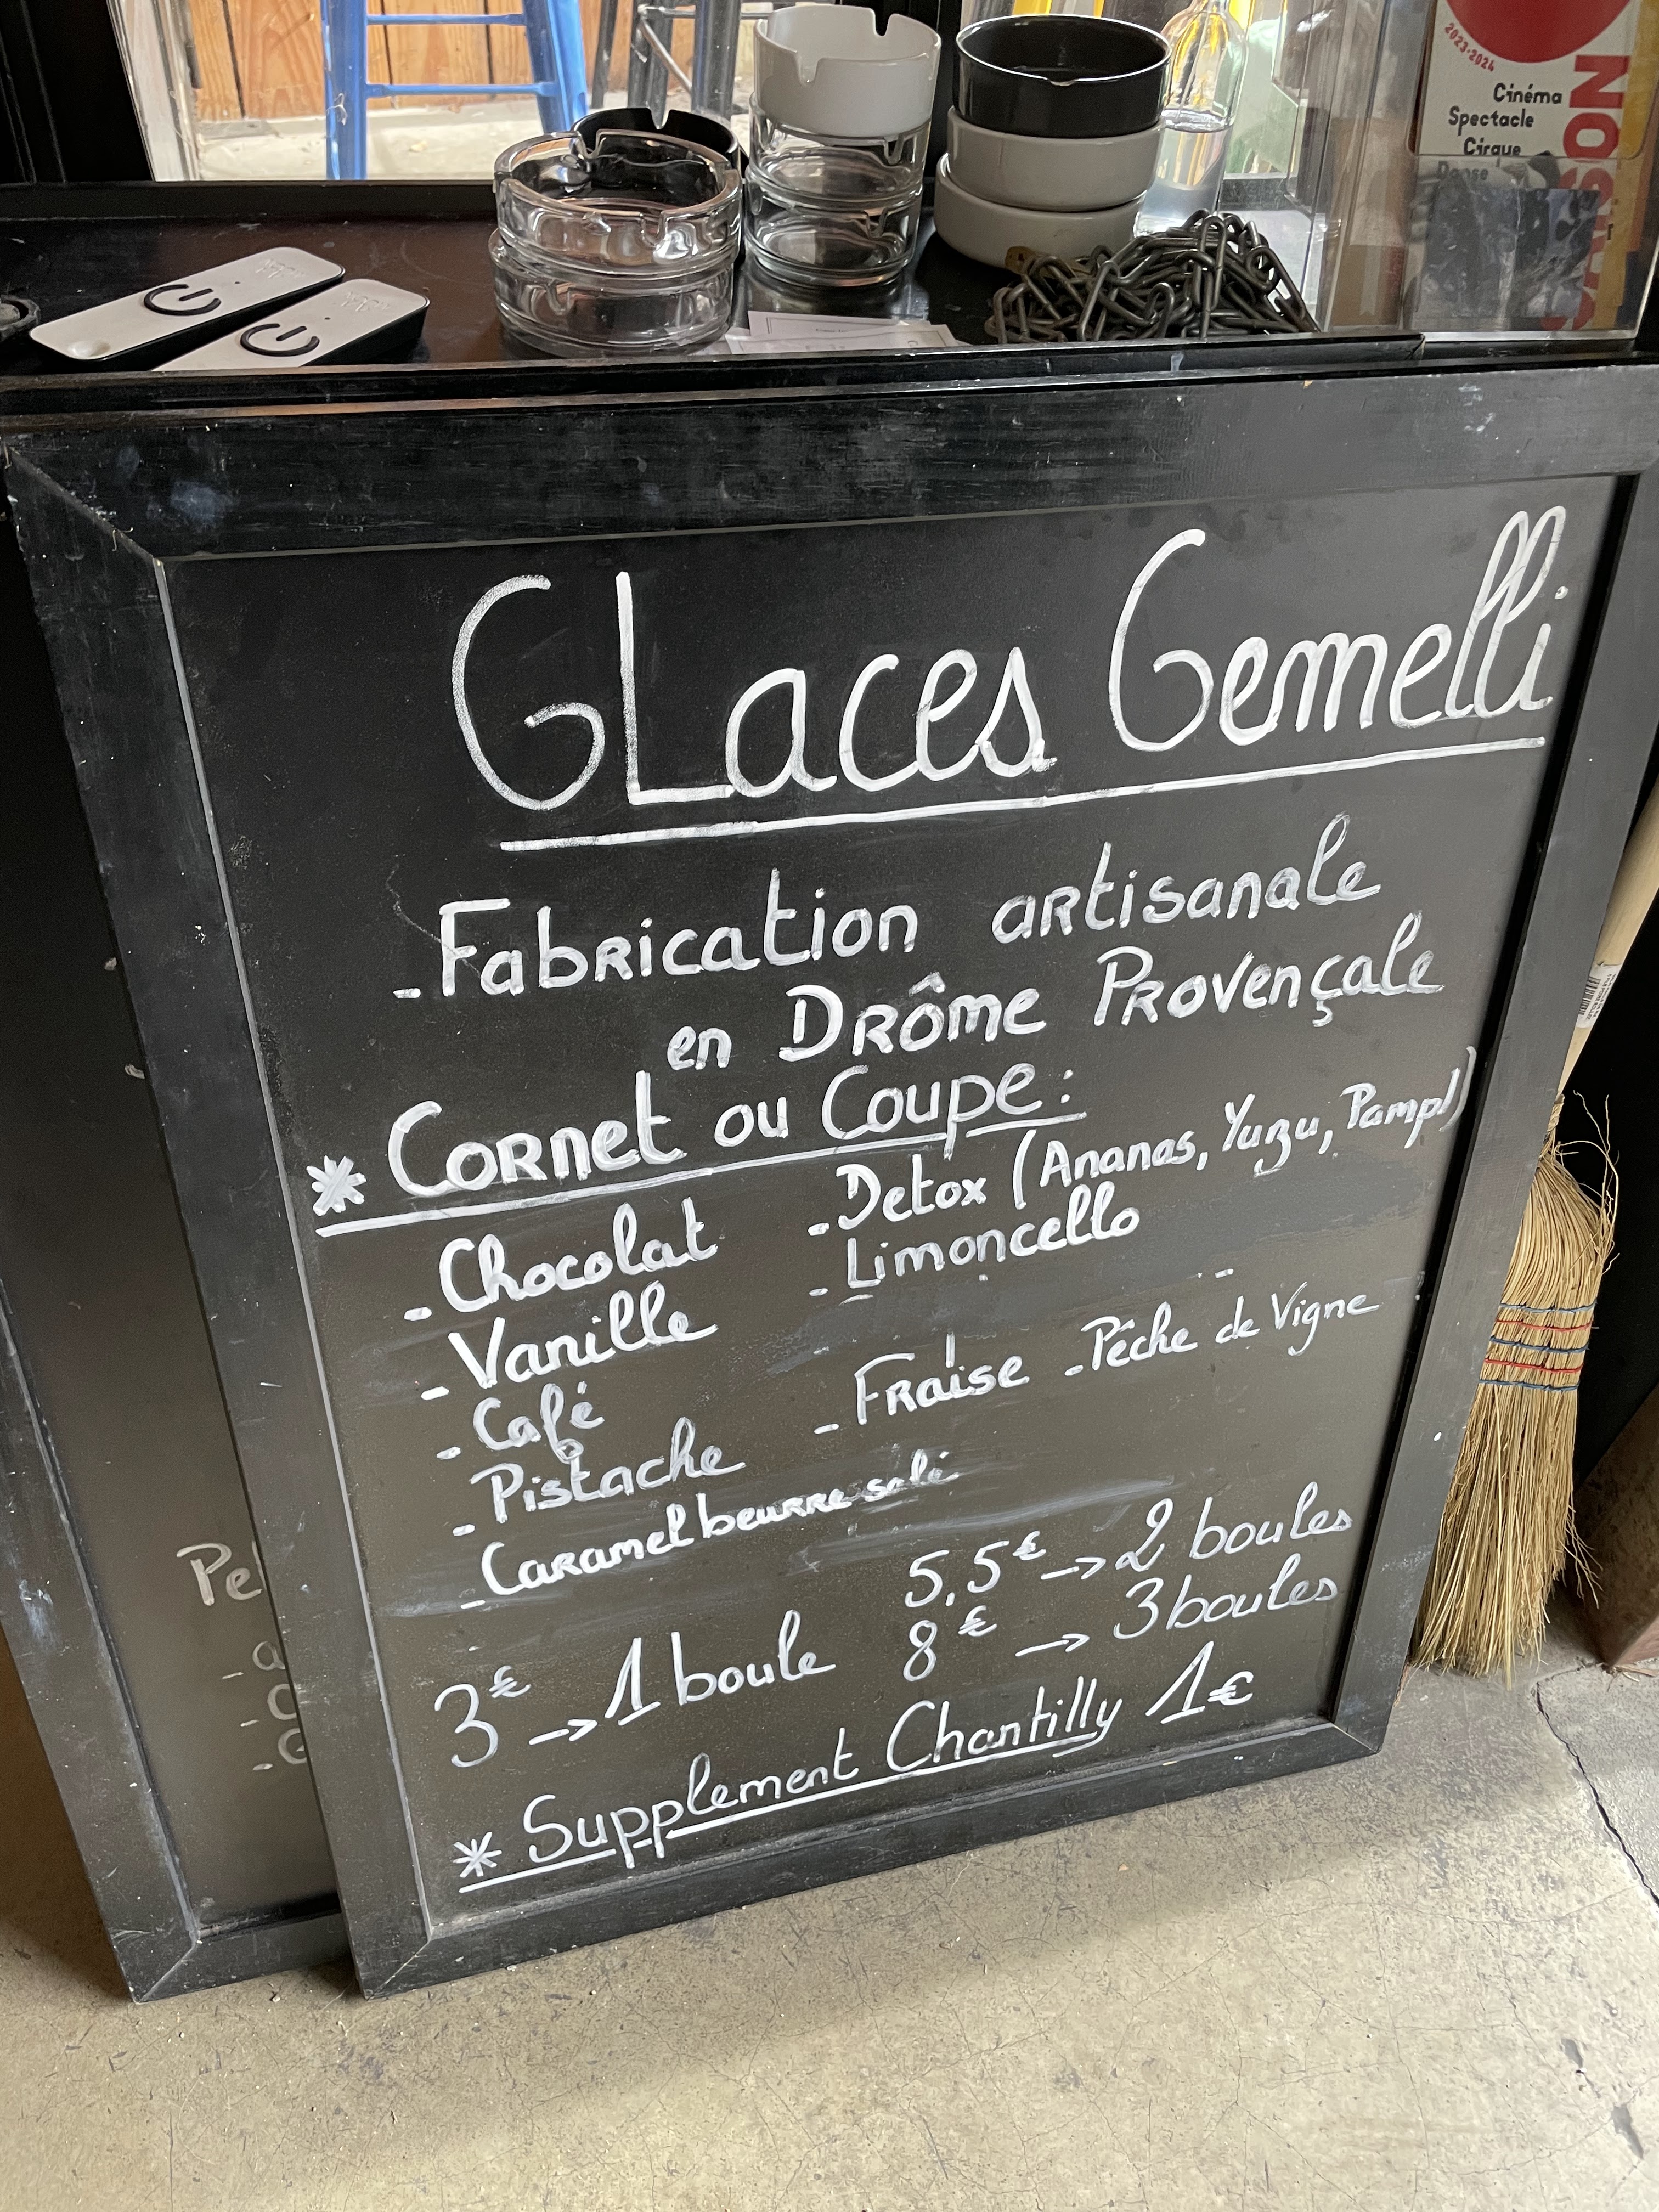 2023-2024
Cinéma
Spectacle
Cirque
Danse
SAISON
GLaces Gemelli
- Fabrication artisanale
en Drôme Provençale
* Cornet ou Coupe :
- Chocolat
- Vanille
- Café
- Pistache
- Caramel beurre salé
- Detox (Ananas, Yuzu, Pampl)
- Limoncello
- Fraise - Pêche de Vigne
3€ -> 1 boule
5,5€ -> 2 boules
8€ -> 3 boules
* Supplement Chantilly 1€
Pe